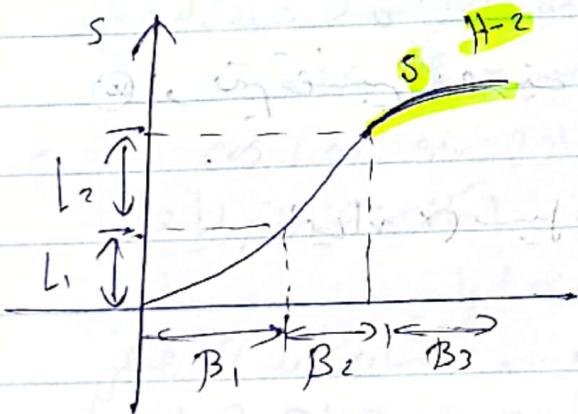 S
H-2
S
L2
L1
β1
β2
β3